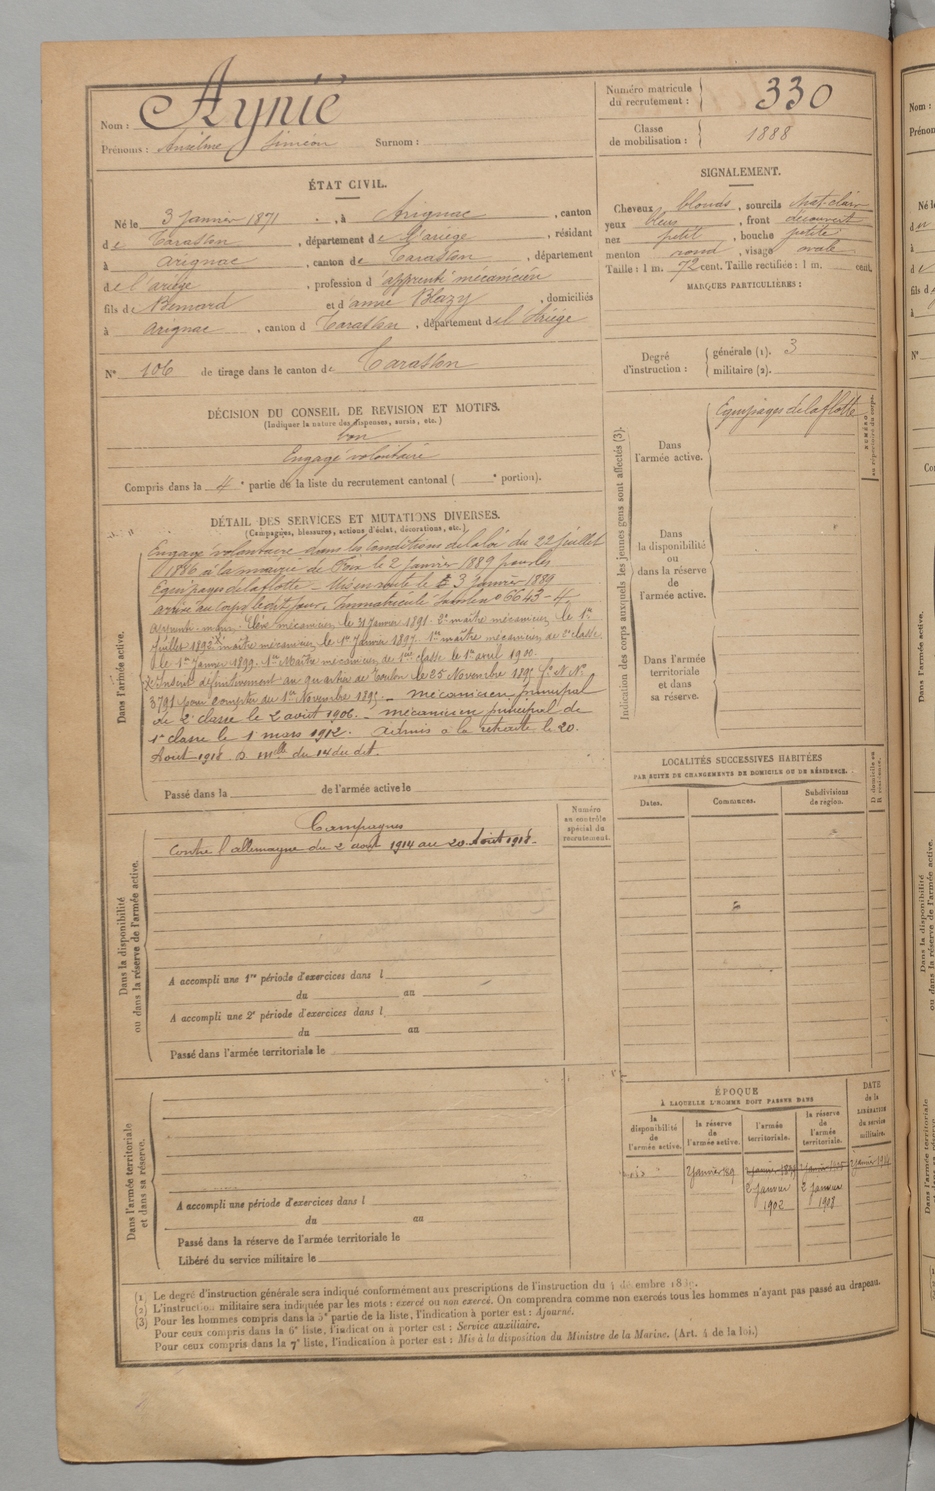 Nom : Aynié
Prénoms : Anselme Siméon Surnom :
Numéro matricule du recrutement : 330
Classe de mobilisation : 1888
ÉTAT CIVIL.
Né le 3 Janvier 1871, à Arignac, canton
de Tarascon, département de l'ariège, résidant
à Arignac, canton de Tarascon, département
de l'ariège, profession d'apprenti mécanicien
fils de Bernard et d'anne Blazy, domiciliés
à Arignac, canton d Tarascon, département de l'Ariège
N° 106 de tirage dans le canton de Tarascon
SIGNALEMENT.
Cheveux blonds, sourcils chat-clair
yeux bleus, front découvert
nez petit, bouche petite
menton rond, visage ovale
Taille : 1 m. 72 cent. Taille rectifiée : 1 m. cent.
MARQUES PARTICULIÈRES :
Degré d'instruction : générale (1). 3
militaire (2).
DÉCISION DU CONSEIL DE REVISION ET MOTIFS.
(Indiquer la nature des dispenses, sursis, etc.)
bon
Engagé volontaire
Compris dans la 4e partie de la liste du recrutement cantonal ( e portion).
DÉTAIL DES SERVICES ET MUTATIONS DIVERSES.
(Campagnes, blessures, actions d'éclat, décorations, etc.)
Dans l'armée active.
Engagé volontaire dans les Conditions de la loi du 22 juillet
1886 à la mairie de Foix le 2 janvier 1889 pour les
Equipages de la flotte - Mis en route le 3 janvier 1889
arrivé au corps le dit jour, immatriculé sous le n° 6643-4
apprenti-marin, Elève mécanicien le 21 Janvier 1891. 2e maître mécanicien le 1er
Juillet 1892. maître mécanicien le 1er Janvier 1897. 1er maître mécanicien de 2e classe
le 1er Janvier 1899. 1er Maître mécanicien de 1ère classe le 1er avril 1900.
Inscrit définitivement au quartier de Toulon le 25 Novembre 1895 f° N N°
3791 pour compter du 1er Novembre 1895 - mécanicien principal
de 2e classe le 2 août 1906. - mécanicien principal de
1e classe le 1 mars 1912. Admis à la retraite le 20.
Août 1918 D. mlle du 14 du dit.
Passé dans la de l'armée active le
Indication des corps auxquels les jeunes gens sont affectés (3).
Dans l'armée active.
Equipages de la flotte
NUMÉRO au répertoire du corps.
Dans la disponibilité ou dans la réserve de l'armée active.
Dans l'armée territoriale et dans sa réserve.
LOCALITÉS SUCCESSIVES HABITÉES
PAR SUITE DE CHANGEMENTS DE DOMICILE OU DE RÉSIDENCE.
Dates. Communes. Subdivisions de région. D domicile ou R résidence.
Dans la disponibilité ou dans la réserve de l'armée active.
Numéro au contrôle spécial du recrutement.
Campagnes
contre l'allemagne du 2 août 1914 au 20 Août 1918.
A accompli une 1re période d'exercices dans l
du au
A accompli une 2e période d'exercices dans l
du au
Passé dans l'armée territoriale le
Dans l'armée territoriale et dans sa réserve.
A accompli une période d'exercices dans l
du au
Passé dans la réserve de l'armée territoriale le
Libéré du service militaire le
ÉPOQUE
À LAQUELLE L'HOMME DOIT PASSER DANS
la disponibilité de l'armée active.
la réserve de l'armée active.
l'armée territoriale.
la réserve de l'armée territoriale.
DATE de la LIBÉRATION du service militaire.
2 janvier
2 Janvier 1902
2 Janvier 1908
(1) Le degré d'instruction générale sera indiqué conformément aux prescriptions de l'instruction du
(2) L'instruction militaire sera indiquée par les mots : exercé ou non exercé. On comprendra comme non exercés tous les hommes n'ayant pas passé au drapeau.
(3) Pour les hommes compris dans la 5e partie de la liste, l'indication à porter est : Ajourné.
Pour ceux compris dans la 6e liste, l'indication à porter est : Service auxiliaire.
Pour ceux compris dans la 7e liste, l'indication à porter est : Mis à la disposition du Ministre de la Marine. (Art. 4 de la loi.)